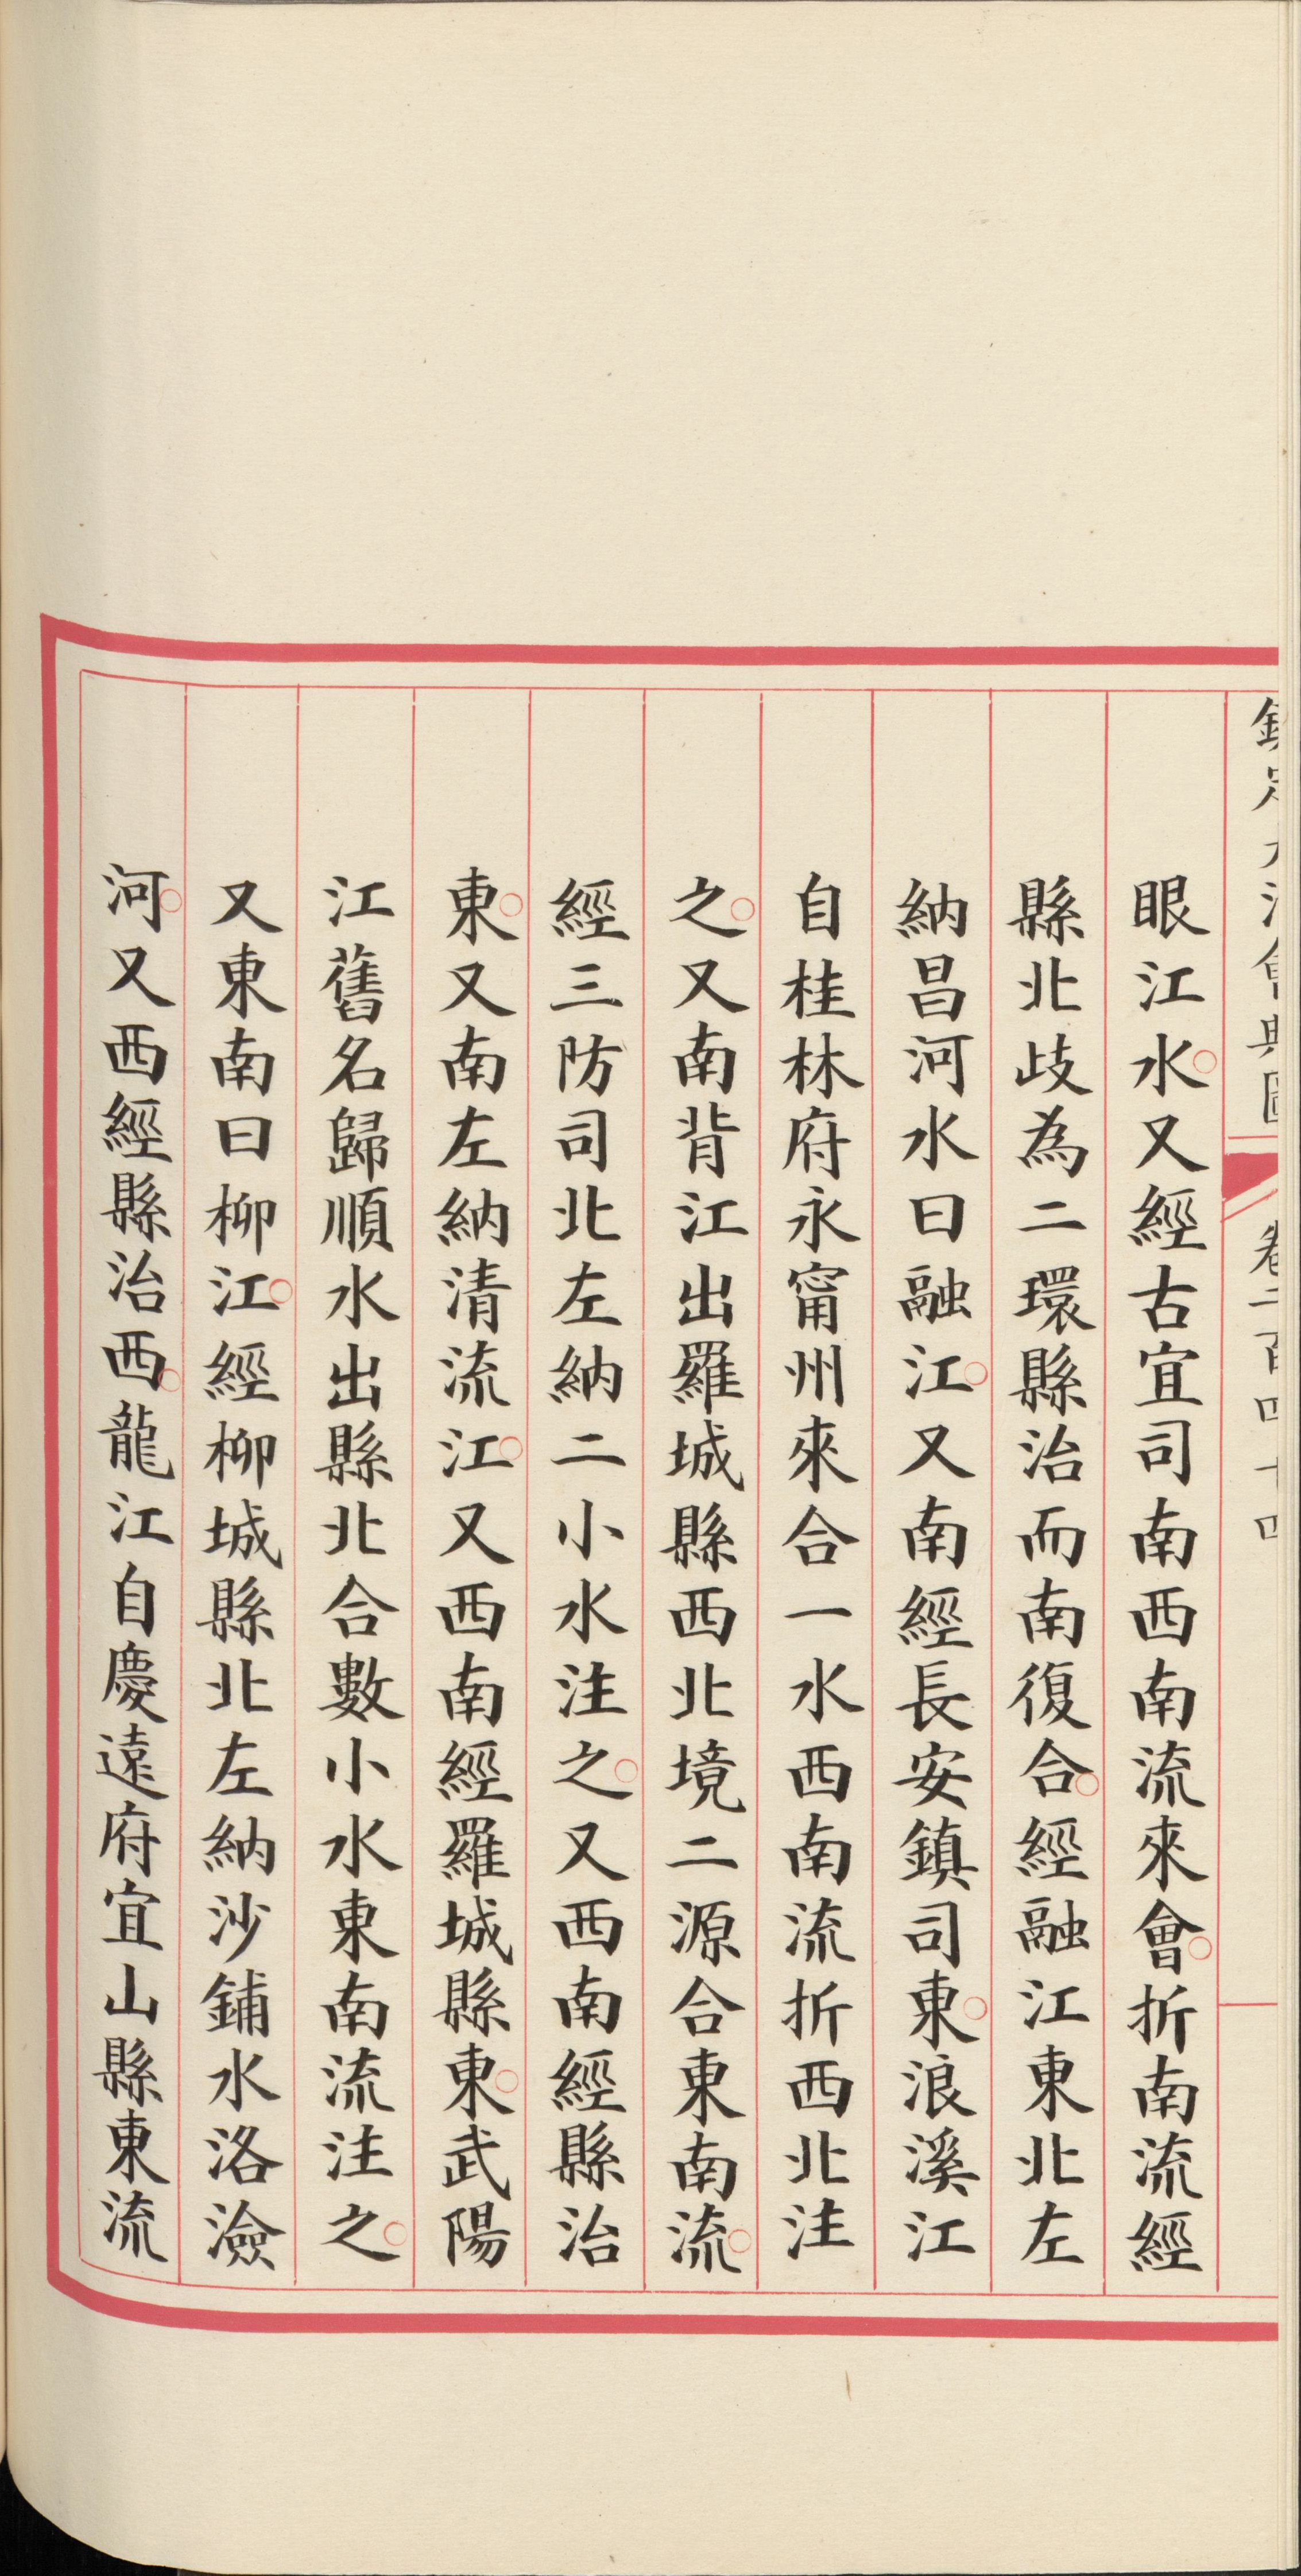 欽定大清會典圖 卷二百四十四
眼江水○又經古宜司南西南流來會○折南流經
縣北歧為二環縣治而南復合○經融江東北左
納昌河水曰融江○又南經長安鎮司東○浪溪江
自桂林府永甯州來合一水西南流折西北注
之○又南背江出羅城縣西北境二源合東南流○
經三防司北左納二小水注之○又西南經縣治
東○又南左納清流江○又西南經羅城縣東○武陽
江舊名歸順水出縣北合數小水東南流注之○
又東南曰柳江○經柳城縣北左納沙鋪水洛澰
河○又西經縣治西○龍江自慶遠府宜山縣東流